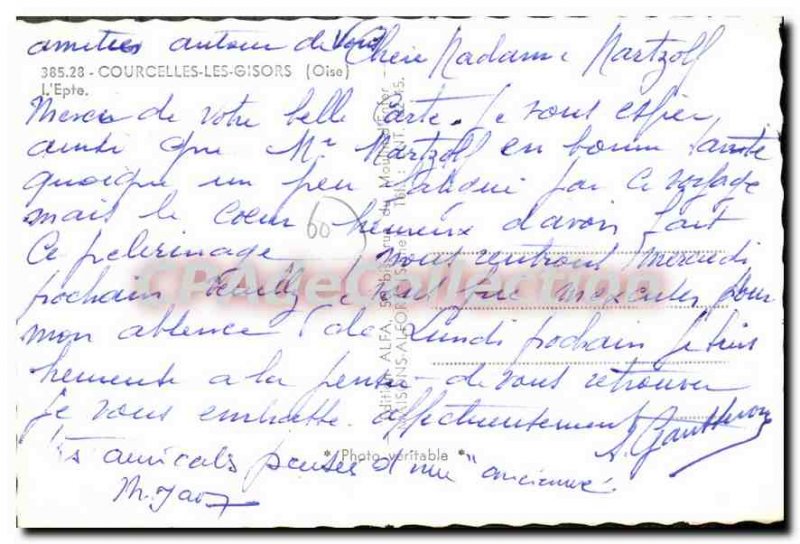 amitiés autour de vous
Chère Madame Martzolf
385.28 - COURCELLES-LES-GISORS (Oise)
L'Epte.
Merci de votre belle carte. Je vous espère
ainsi que Mr Martzolf en bonne santé
quoique un peu fatigué par ce voyage
mais le coeur heureux d'avoir fait
60
Ce pelerinage, nous rentrons Mercredi
prochain Veuillez mexcuser pour
mon absence de Lundi prochain Je suis
heureuse a la pensée de vous retrouver
Je vous embrasse. affectueusement
A. Gautheron
* Photo véritable *
amicales pensées d'une "ancienne".
M.
Edition ALFA, 59, bis, rue du Moulin
MAISONS-ALFORT (Seine) Tél. : ENT.
CPAdeCollection